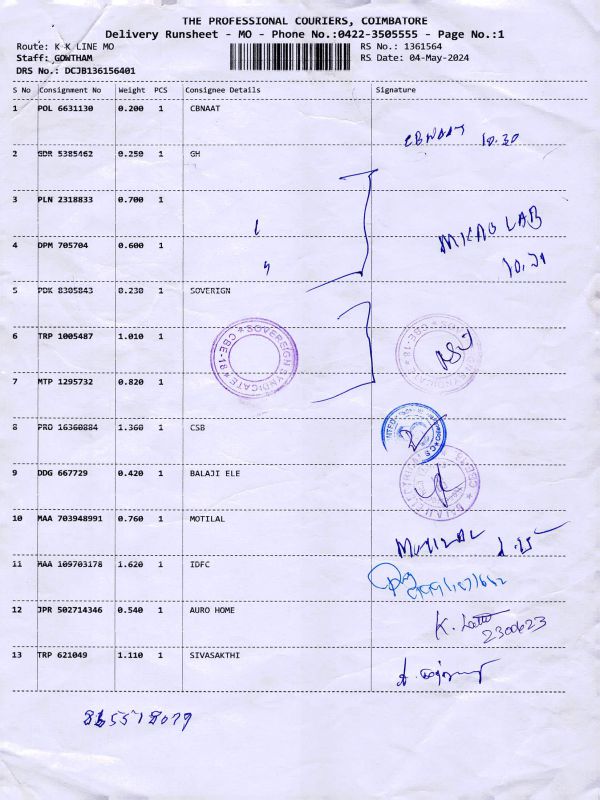 THE PROFESSIONAL COURIERS, COIMBATORE
Delivery Runsheet - MO - Phone No.:0422-3505555 - Page No.:1
Route: K K LINE MO RS No.: 1361564
Staff: GOWTHAM RS Date: 04-May-2024
DRS No.: DCJB136156401
S No Consignment No Weight PCS Consignee Details Signature
1 POL 6631130 0.200 1 CBNAAT
CBNAAT 10.30
2 GDR 5385462 0.250 1 GH
3 PLN 2318833 0.700 1
MICRO LAB
4 DPM 705704 0.600 1
5 PDK 8305843 0.230 1 SOVERIGN
6 TRP 1005487 1.010 1
SOVEREIGN SYNDICATE * CBE-18 *
7 MTP 1295732 0.820 1
8 PRO 16360884 1.360 1 CSB
9 DDG 667729 0.420 1 BALAJI ELE
10 MAA 703948991 0.760 1 MOTILAL
MOTILAL
11 MAA 109703178 1.620 1 IDFC
12 JPR 502714346 0.540 1 AURO HOME
K.
2300623
13 TRP 621049 1.110 1 SIVASAKTHI